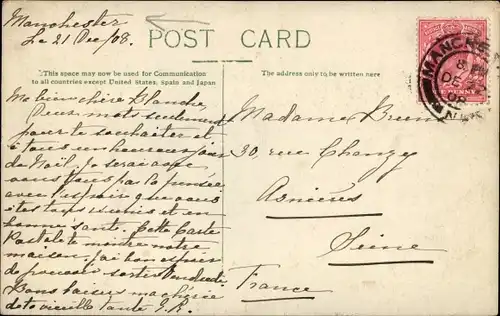 Manchester
Le 21 Dec/08.
POST CARD
This space may now be used for Communication
to all countries except United States, Spain and Japan
The address only to be written here
Ma bien chère Blanche
Deux mots seulement
pour te souhaiter et
à tous un heureux jour
de Noël. Je serai avec
vous tous par la pensée
avec l'espoir que vous
êtes tous réunis et en
bonne santé. Cette Carte
Postale te montre notre
maison. J'ai bon espoir
de pouvoir sortir Vendredi
Bons baisers ma chérie
de ta vieille tante
Madame Brun
30, rue Chanzy
Asnières
Seine
France
MANCHES
DE
08
ONE PENNY